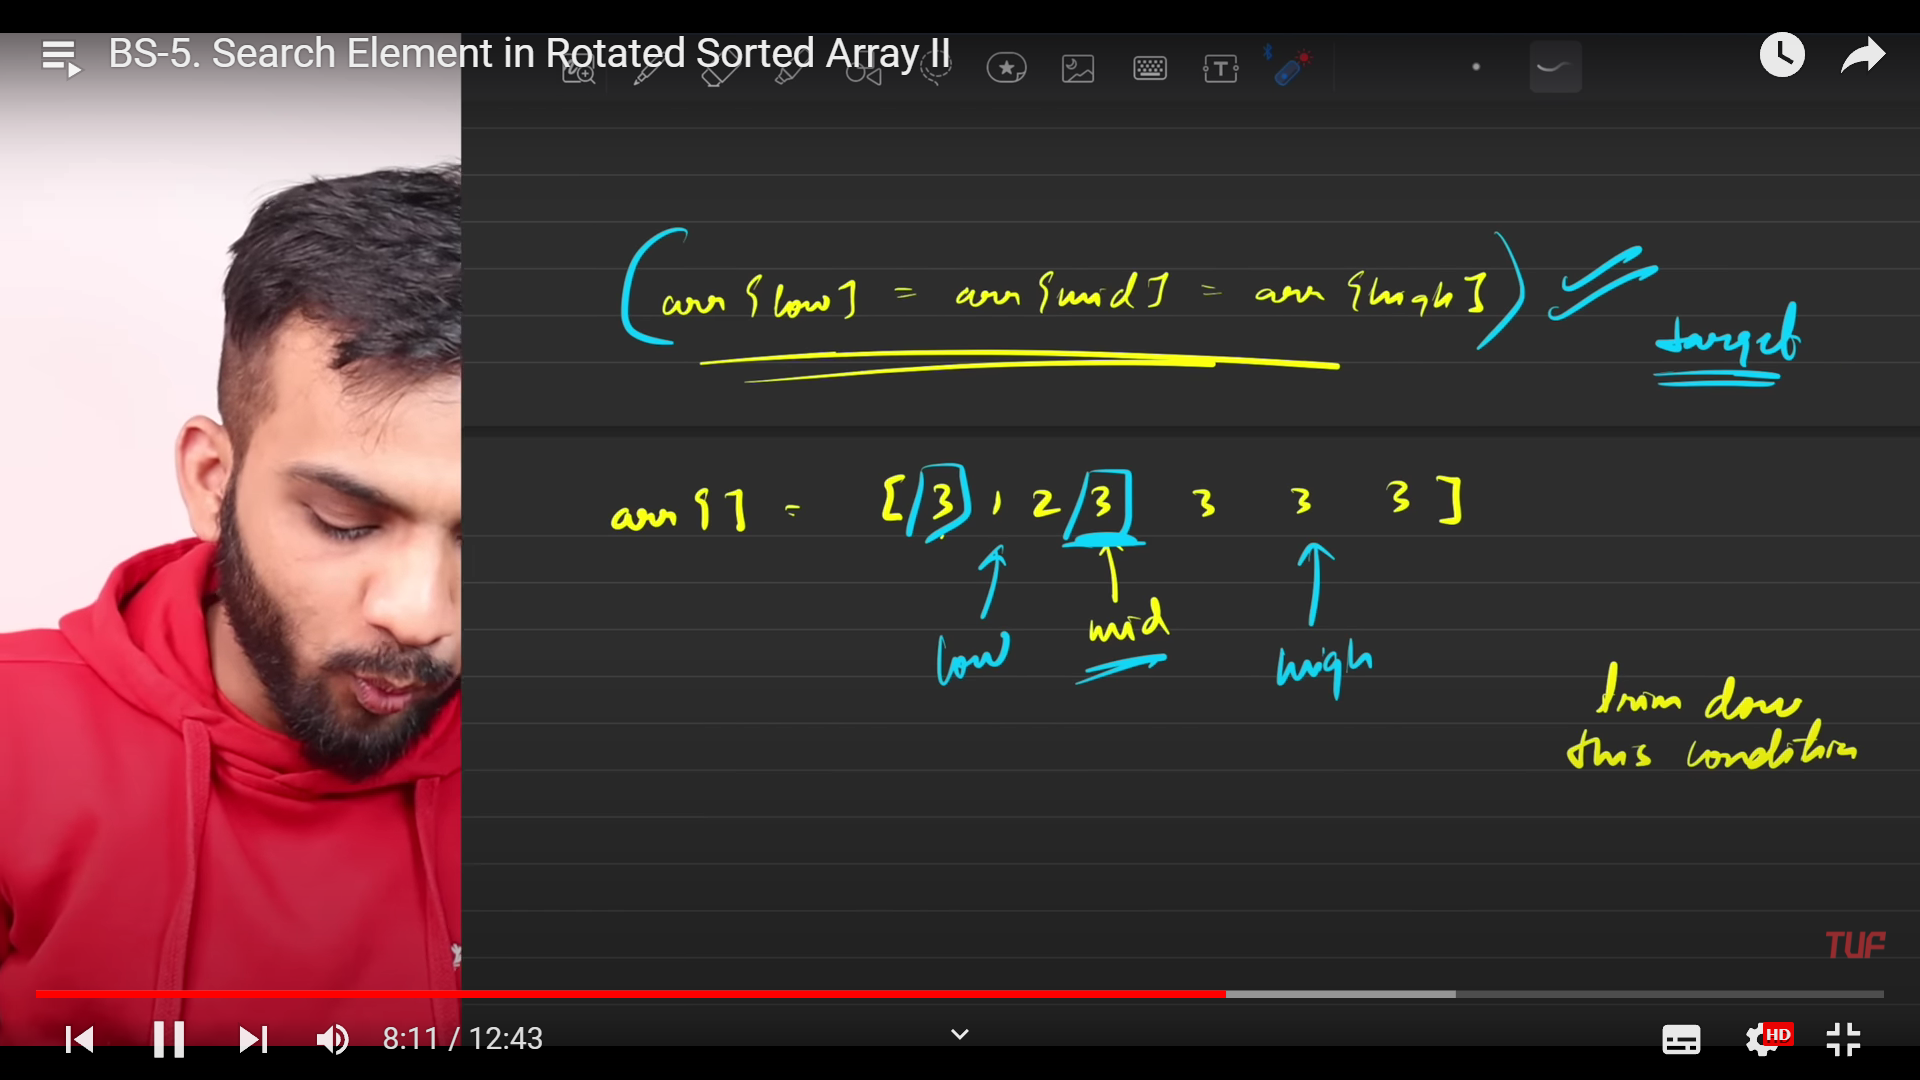 BS-5. Search Element in Rotated Sorted Array II
(arr[low] = arr[mid] = arr[high])
target
arr[] = [3 1 2 3 3 3 3]
low mid high
trim down
this condition
TUF
8:11 / 12:43
HD